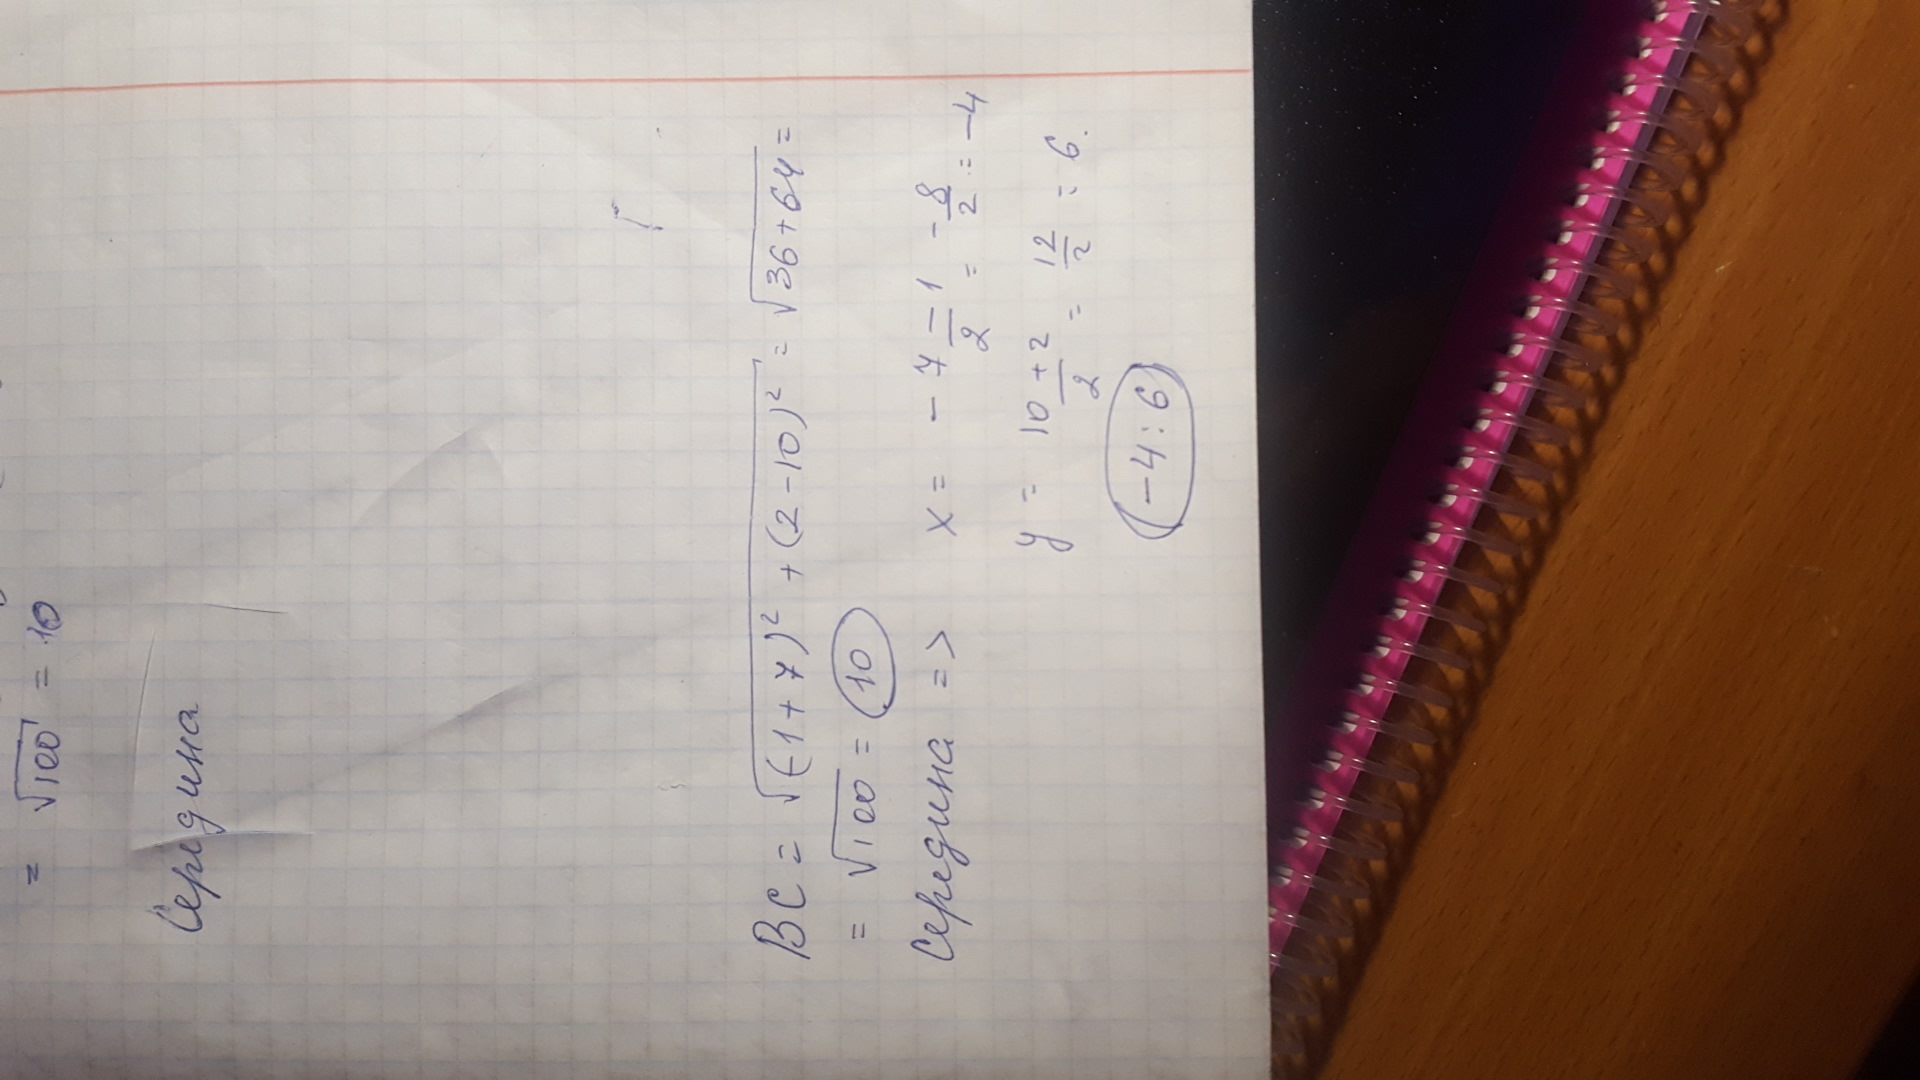 = √100 = 10
Середина
BC = √(-1+7)² + (2-10)² = √36+64 =
= √100 = 10
Середина => x = -7-1/2 = -8/2 = -4
y = 10+2/2 = 12/2 = 6.
(-4:6)